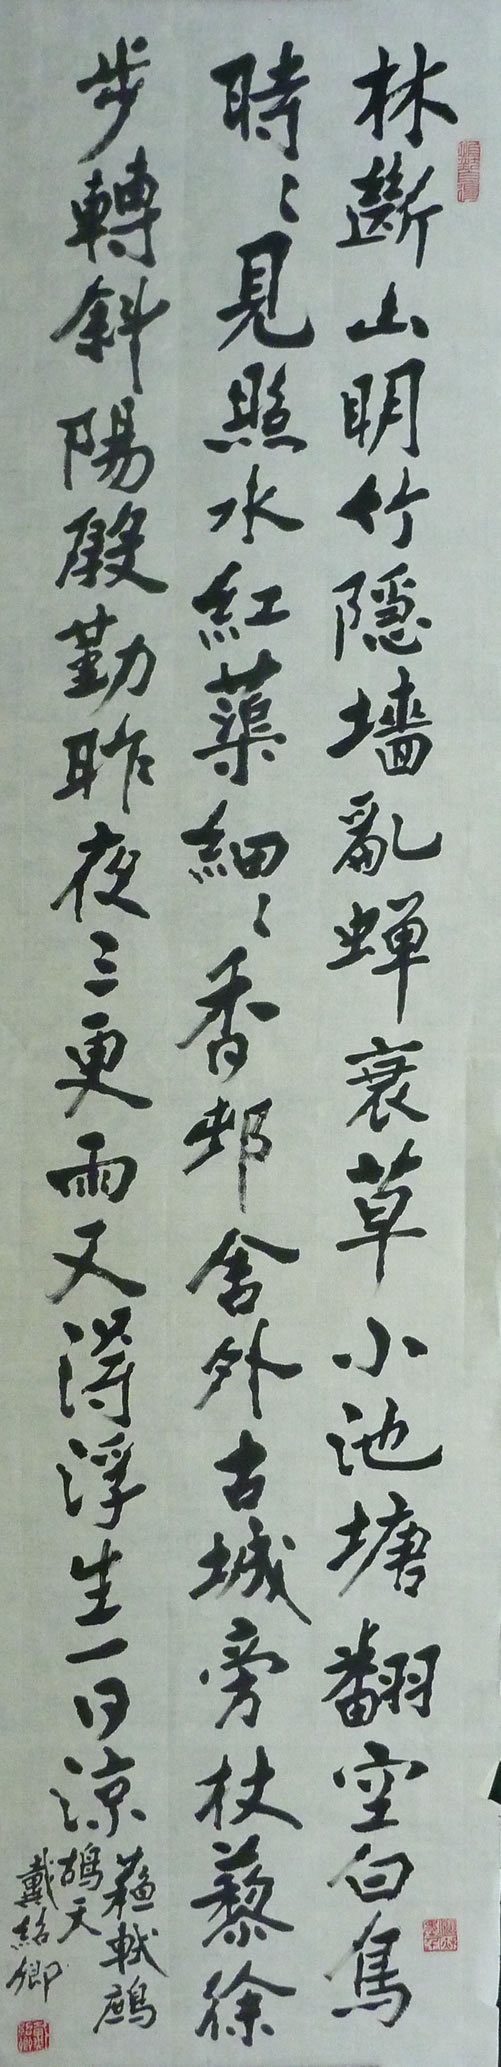 林斷山明竹隱墻亂蟬衰草小池塘翻空白鳥
時〻見照水紅蕖細〻香邨舍外古城旁杖藜徐
步轉斜陽殷勤昨夜三更雨又得浮生一日涼
蘇軾鷓
鴣天
戴紹卿